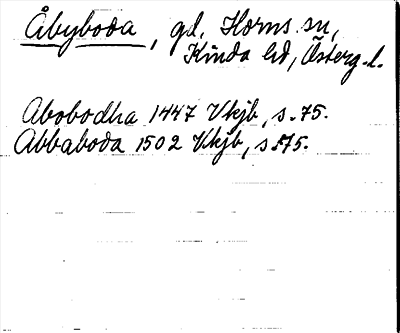 Åbyboda, gd, Horns sn,
Kinda hd, Österg.l.
Abobodha 1447 Vkjb, s. 75.
Abbaboda 1502 Vkjb, s. 575.